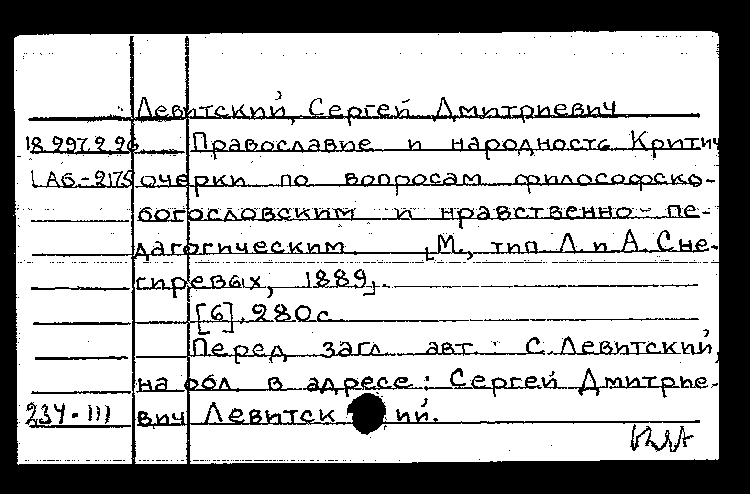 Левитский, Сергей Дмитриевич
18.297.2.96 Православие и народность Критич
LAG-2175 очерки по вопросам философско-
богословским и нравственно-пе-
дагогическим. [М., тип Л. и А. Сне-
гиревых, 1889].
[6], 280с.
Перед загл. авт.: С.Левитский,
на обл. в адресе: Сергей Дмитрие-
234-III вич Левитский.